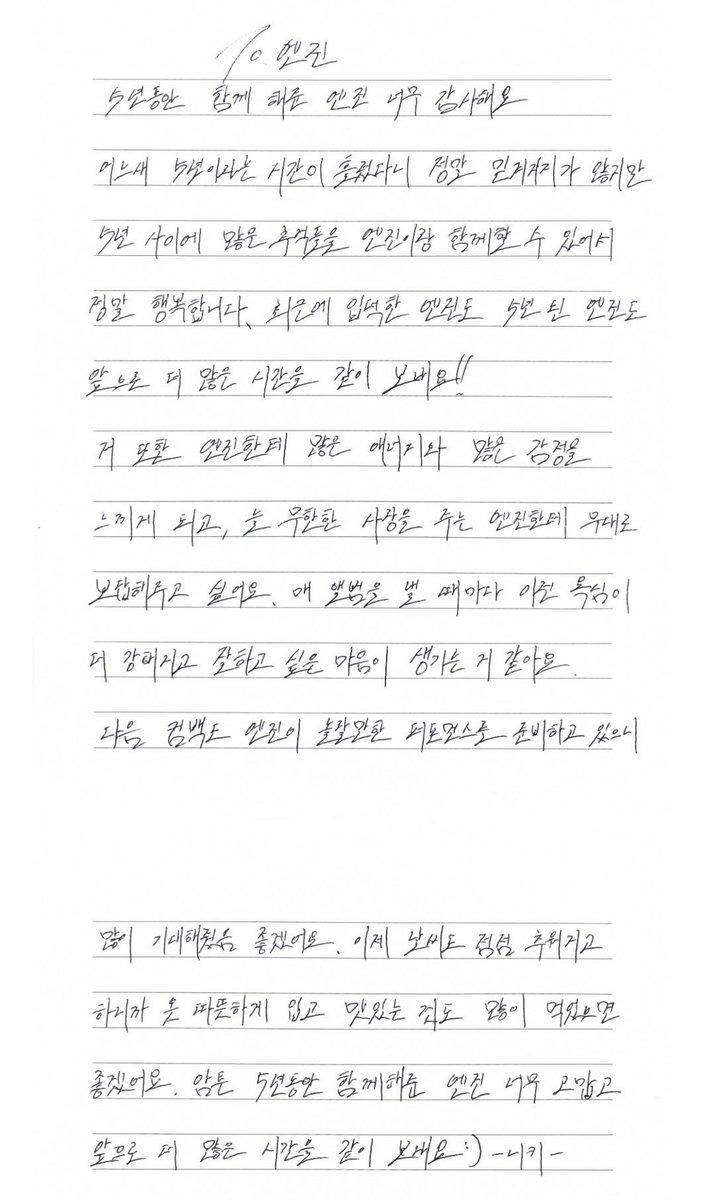 To. 엔진
5년동안 함께 해준 엔진 너무 감사해요
어느새 5년이라는 시간이 흘렀다니 정말 믿겨지지가 않지만
5년 사이에 많은 추억들을 엔진이랑 함께할 수 있어서
정말 행복합니다. 최근에 입덕한 엔진도 5년 된 엔진도
앞으로 더 많은 시간을 같이 보내요!!
저 또한 엔진한테 많은 에너지와 많은 감정을
느끼게 되고, 늘 무한한 사랑을 주는 엔진한테 무대로
보답해주고 싶어요. 매 앨범을 낼 때마다 이런 욕심이
더 강해지고 잘하고 싶은 마음이 생기는 거 같아요.
다음 컴백도 엔진이 놀랄만한 퍼포먼스로 준비하고 있으니
많이 기대해줬음 좋겠어요. 이제 날씨도 점점 추워지고
하니까 옷 따뜻하게 입고 맛있는 것도 많이 먹었으면
좋겠어요. 암튼 5년동안 함께해준 엔진 너무 고맙고
앞으로 더 많은 시간을 같이 보내요:) -니키-